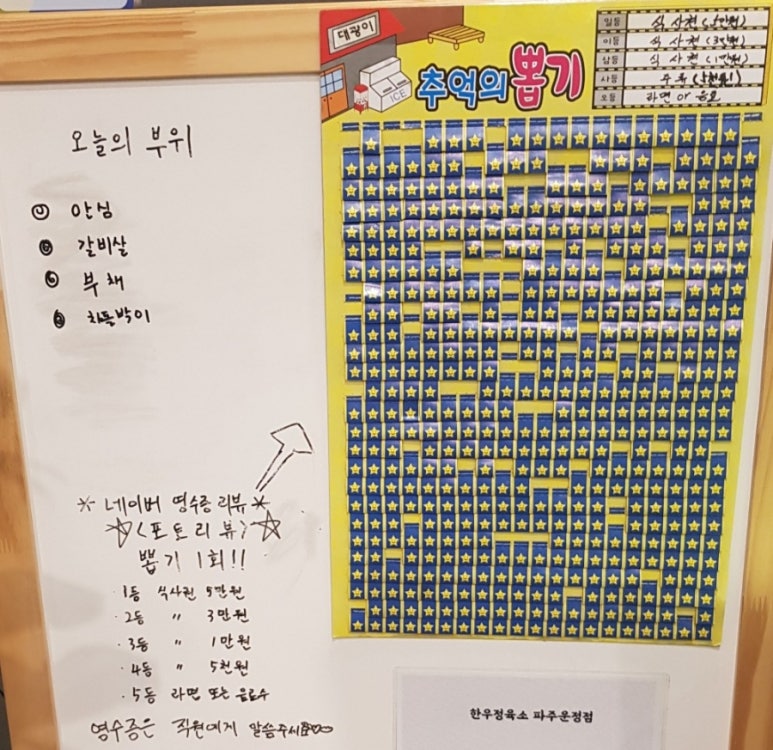 오늘의 부위
① 안심
갈비살
부채
차돌박이
* 네이버 영수증 리뷰 *
☆<포토리뷰>☆
뽑기 1회!!
· 1등 식사권 5만원
· 2등 〃 3만원
· 3등 〃 1만원
· 4등 〃 5천원
· 5등 라면 또는 음료수
영수증은 직원에게 말씀주세요♡♡
대왕이
ICE
추억의 뽑기
일등 식사권 (5만원)
이등 식사권 (3만원)
삼등 식사권 (1만원)
사등 (5천원!)
오등 라면 or 음료
한우정육소 파주운정점